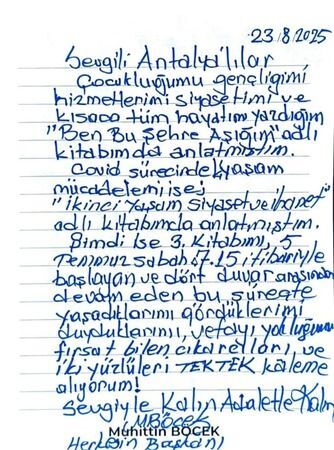 23/8/2025
Sevgili Antalya'lılar
Çocukluğumu gençliğimi
hizmetlerimi siyasetimi ve
kısaca tüm hayatımı yazdığım
"Ben Bu Şehre Aşığım" adlı
kitabımda anlatmıştım.
Covid sürecindeki yaşam
mücadelemi ise;
"ikinci yaşam siyaset ve ihanet"
adlı kitabımda anlatmıştım.
Şimdi ise 3. Kitabımı, 5
Temmuz sabah 07.15 itibariyle
başlayan ve dört duvar arasından
devam eden bu süreçte
yaşadıklarımı gördüklerimi
duyduklarımı, vefayı yokluğumu
fırsat bilen çıkarcıları, ve
iki yüzlüleri TEKTEK kaleme
alıyorum!
Sevgiyle Kalın Adaletle Kalın
MBöcek
Muhittin BÖCEK
Herkesin Başkanı